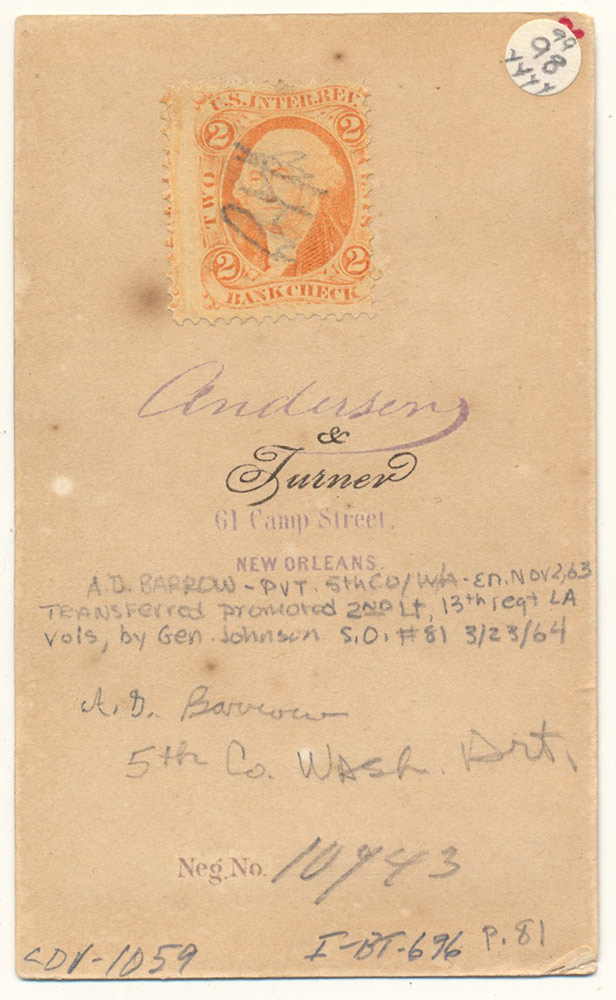 99
98
U.S. INTER. REV.
2 2
TWO CENTS
2 2
BANK CHECK
Anderson
&
Turner
61 Camp Street,
NEW ORLEANS.
A.D. BARROW - PVT. 5th CO/W/A - En. Nov 2, 63
TRANSferred promoted 2ND Lt, 13th regt LA
Vols, by Gen. Johnson S.O. #81 3/23/64
A. D. Barrow
5th Co. Wash. Art.
Neg. No. 10943
CDV-1059
I-BT-696 p. 81